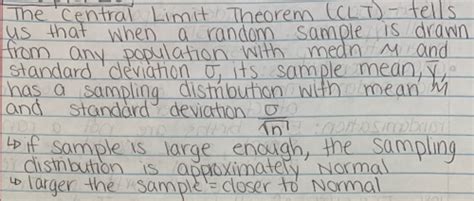 The Central Limit Theorem (CLT) - tells
us that when a random sample is drawn
from any population with mean μ and
standard deviation σ, its sample mean, ȳ,
has a sampling distribution with mean μ
and standard deviation σ/√n
↳ if sample is large enough, the sampling
distribution is approximately Normal
↳ larger the sample = closer to Normal